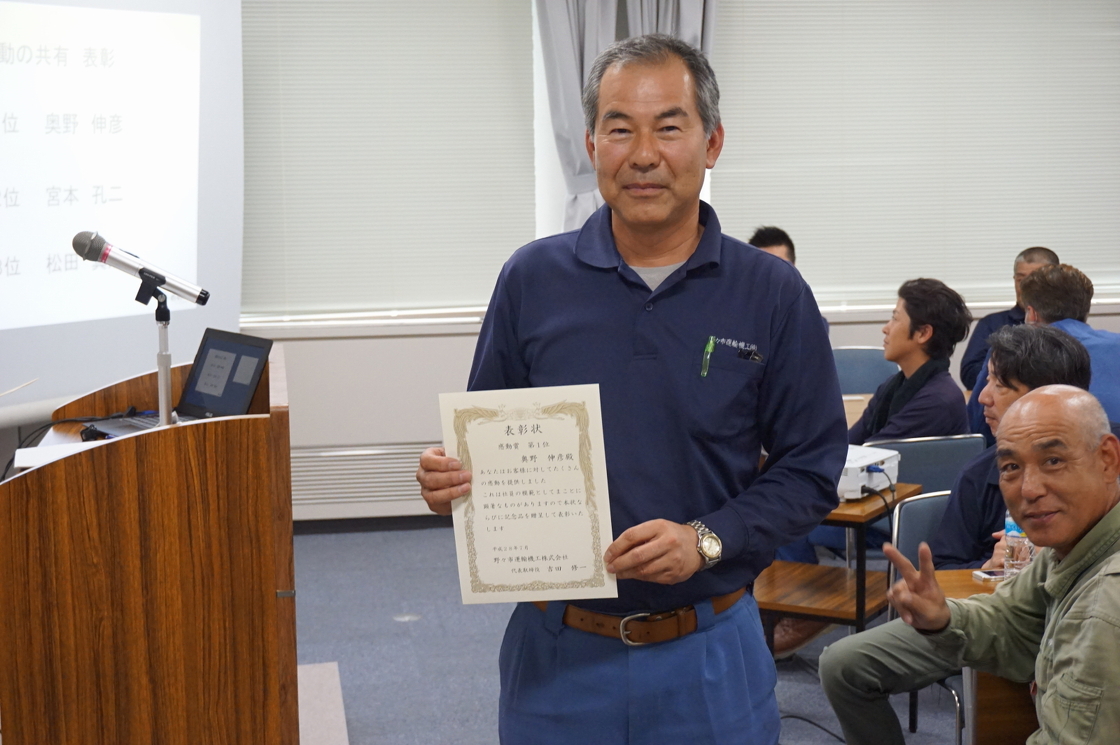 動の共有 表彰
位 奥野 伸彦
位 宮本 孔二
位 松田
々市運輸機工㈱
表彰状
感動賞 第1位
奥野 伸彦殿
あなたはお客様に対してたくさん
の感動を提供しました
これは社員の模範としてまことに
顕著なものがありますので本状な
らびに記念品を贈呈して表彰いた
します
野々市運輸機工株式会社
代表取締役 吉田 修一